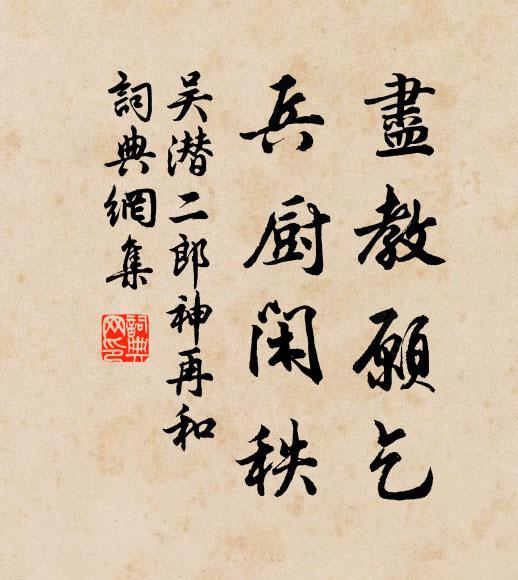 盡教願乞
兵厨閑秩
吴潜二郎神再和
詞典網集
詞典網印